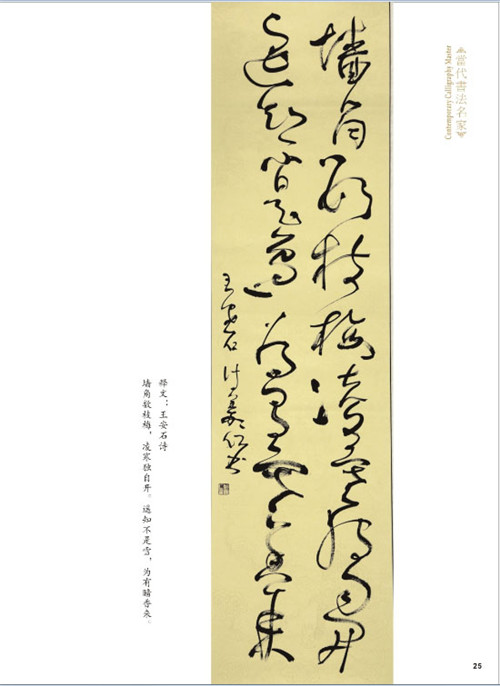 當代書法名家
Contemporary Calligraphy Master
墙角数枝梅凌寒独自开
遥知不是雪为有暗香来
王安石诗
释文：王安石诗
墙角数枝梅，凌寒独自开。遥知不是雪，为有暗香来。
25